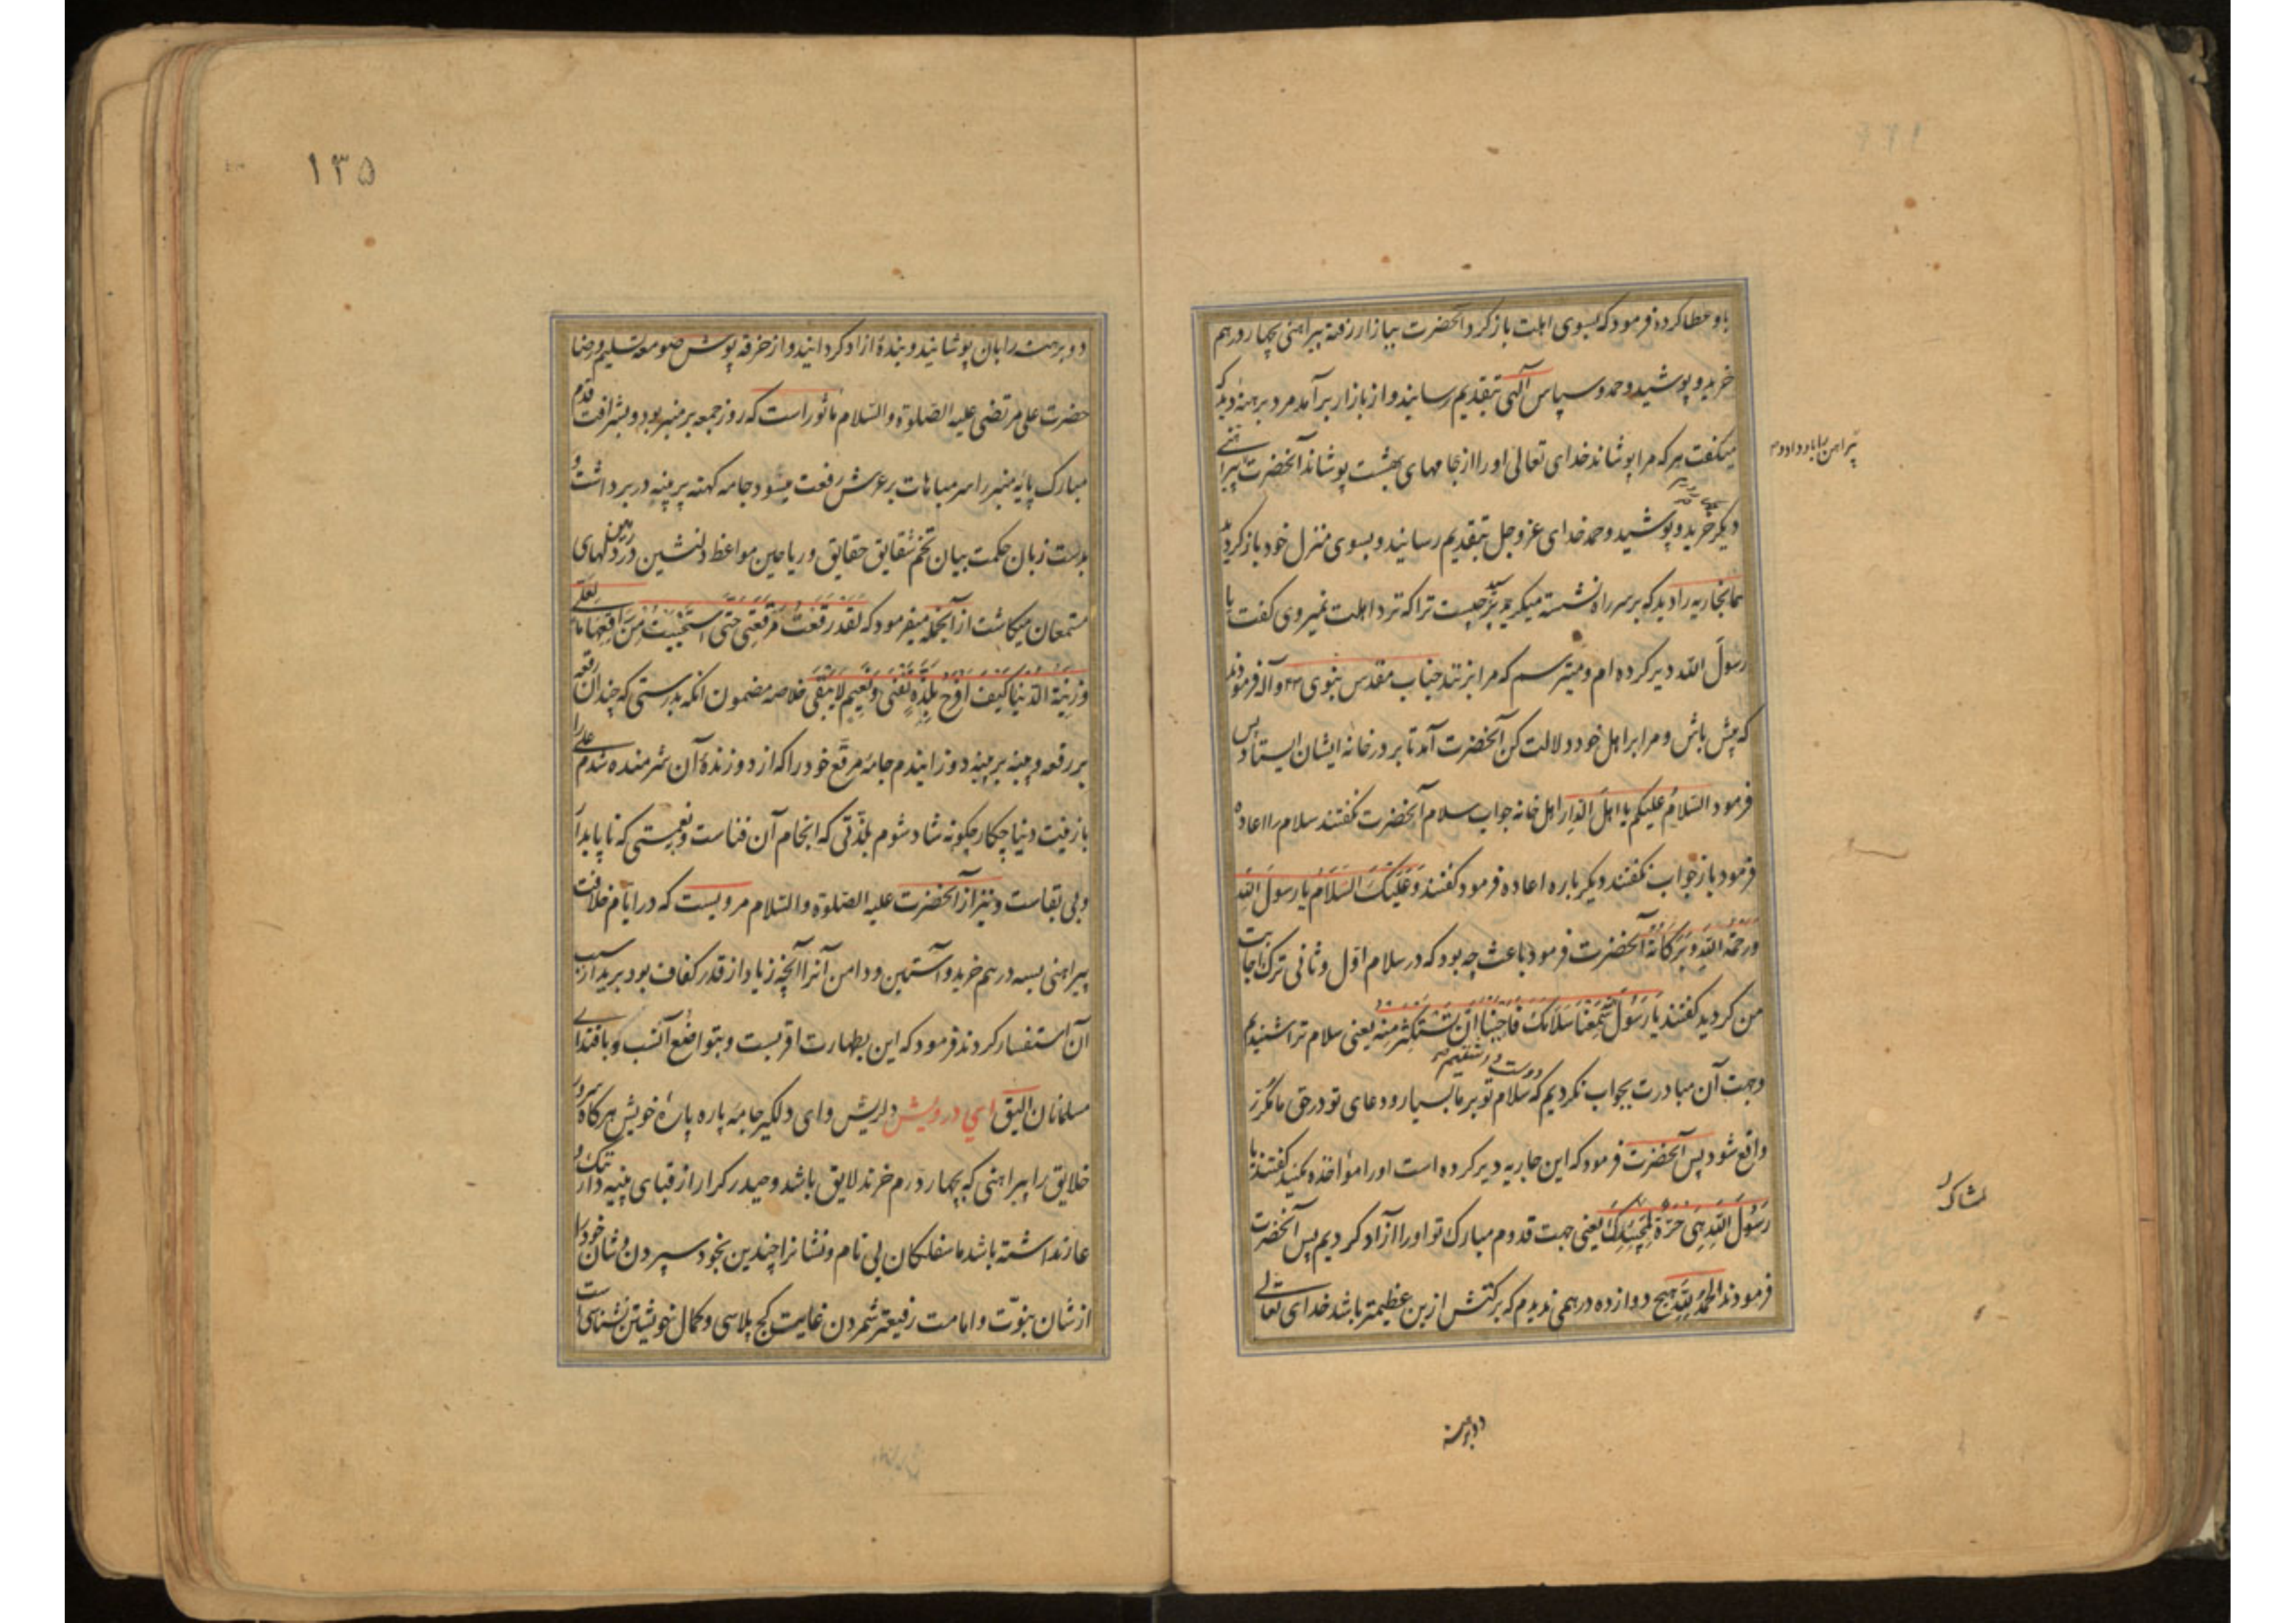 باو عطا کرده فرمود که بسوی اهلت باز کرد و آنحضرت ببازار رفته پیراهنی بچهار درهم
خرید و پوشید و حمد و سپاس آلهی بتقدیم رسانید و از بازار برآمد مرد برهنهٔ دید که
میکفت هر که مرا پوشاند خدای تعالی او را از جامهای بهشت پوشاند آنحضرت پیراهنی
پیراهن را باو داد و
دیکر خرید و پوشید و حمد خدای عز و جل بتقدیم رسانید و بسوی منزل خود باز کردید
همانجاریه را دید که بر سر راه نشسته میکرید پرسید چیست ترا که نزد اهلت نمیروی کفت یا
رسول الله دیر کرده ام و میترسم که مرا بزنند جناب مقدس نبوی و آله فرمودند
که پیش باش و مرا بر اهل خود دلالت کن آنحضرت آمد تا بر در خانه ایشان ایستاد پس
فرمود السلام علیکم یا اهل الدار اهل خانه جواب سلام آنحضرت نکفتند سلام را اعاده
فرمود باز جواب نکفتند دیکر باره اعاده فرمود کفتند وَعَلَیکَ السَلَامُ یا رسولَ اللهِ
وَرَحمَةُ اللهِ وَبَرَکَاتُهُ آنحضرت فرمود باعث چه بود که در سلام اول و ثانی ترک اجابت
من کردید کفتند یَا رَسُولَ اللهِ سَمِعنَا سَلَامَکَ فَاَحبَبنَا اَن نَستَکثِرَ مِنهُ یعنی سلام ترا شنیدیم
دوست داشتیم
و جهت آن مبادرت بجواب نکردیم که سلام تو بر ما بسیار و دعای تو در حق ما مکرر
واقع شود پس آنحضرت فرمود که این جاریه دیر کرده است او را مواخذه مکنید کفتند یا
رَسُولَ اللهِ هِیَ حُرَّةٌ لِمَمشَاکَ یعنی جهت قدوم مبارک تو او را آزاد کردیم پس آنحضرت
لممشاک
فرمودند الحمدُ للهِ هیچ دوازده درهمی ندیدم که برکتش ازین عظیمتر باشد خدای تعالی
دو برهنه
۱۳۵
دو برهنه را بان پوشانید و بندهٔ ازاد کردانید و از خرقه پوش صومعه تسلیم و رضا
حضرت علی مرتضی علیه الصلوة والسلام ماثور است که روز جمعه بر منبر بود و بشرافت قدم
مبارک پایهٔ منبر را سر مباهات بر عرش رفعت میسود جامه کهنه پر پینه در بر داشت و
بدست زبان حکمت بیان تخم شقایق حقایق و ریاحین مواعظ دلنشین در زمین دلهای
مستمعان میکاشت از آنجمله میفرمود که لَقَد رَقَعتُ مَرقَعَتِی حَتَّی استَحیَیتُ مِن رَاقِعِهَا مَا لِعَلِیٍّ
وَزِینَةِ الدُنیَا کَیفَ اَفرَحُ بِلَذَّةٍ تَفنَی وَنَعِیمٍ لَا یَبقَی خلاصه مضمون آنکه بدرستی که چندان رقعه
بر رقعه و پینه بر پینه دوزانیدم جامهٔ مرقع خود را که از دوزندهٔ آن شرمنده شدم علی را
با زینت دنیا چکار چکونه شاد شوم بلذتی که انجام آن فناست و نعمتی که ناپایدار
و بی بقاست و نیز از آنحضرت علیه الصلوة والسلام مرویست که در ایام خلافت
پیراهنی بسه درهم خرید و آستین و دامن آنرا آنچه زیاد از قدر کفاف بود برید از سبب
آن استفسار کردند فرمود که این بطهارت اقربست و بتواضع انسب و باقتدای
مسلمانان الیق ای درویش دلریش و ای دلکیر جامهٔ پاره پارهٔ خویش هرکاه سرور
خلایق را پیراهنی که بچهار درم خرند لایق باشد و حیدر کرار از قبای پینه دار ننک و
عار نداشته باشد ما سفلکان بی نام و نشانرا چندین بخود سپردن و شان خود را
از شان نبوت و امامت رفیعتر شمردن غایت کج پلاسی و کمال خویشتن نشناسی است